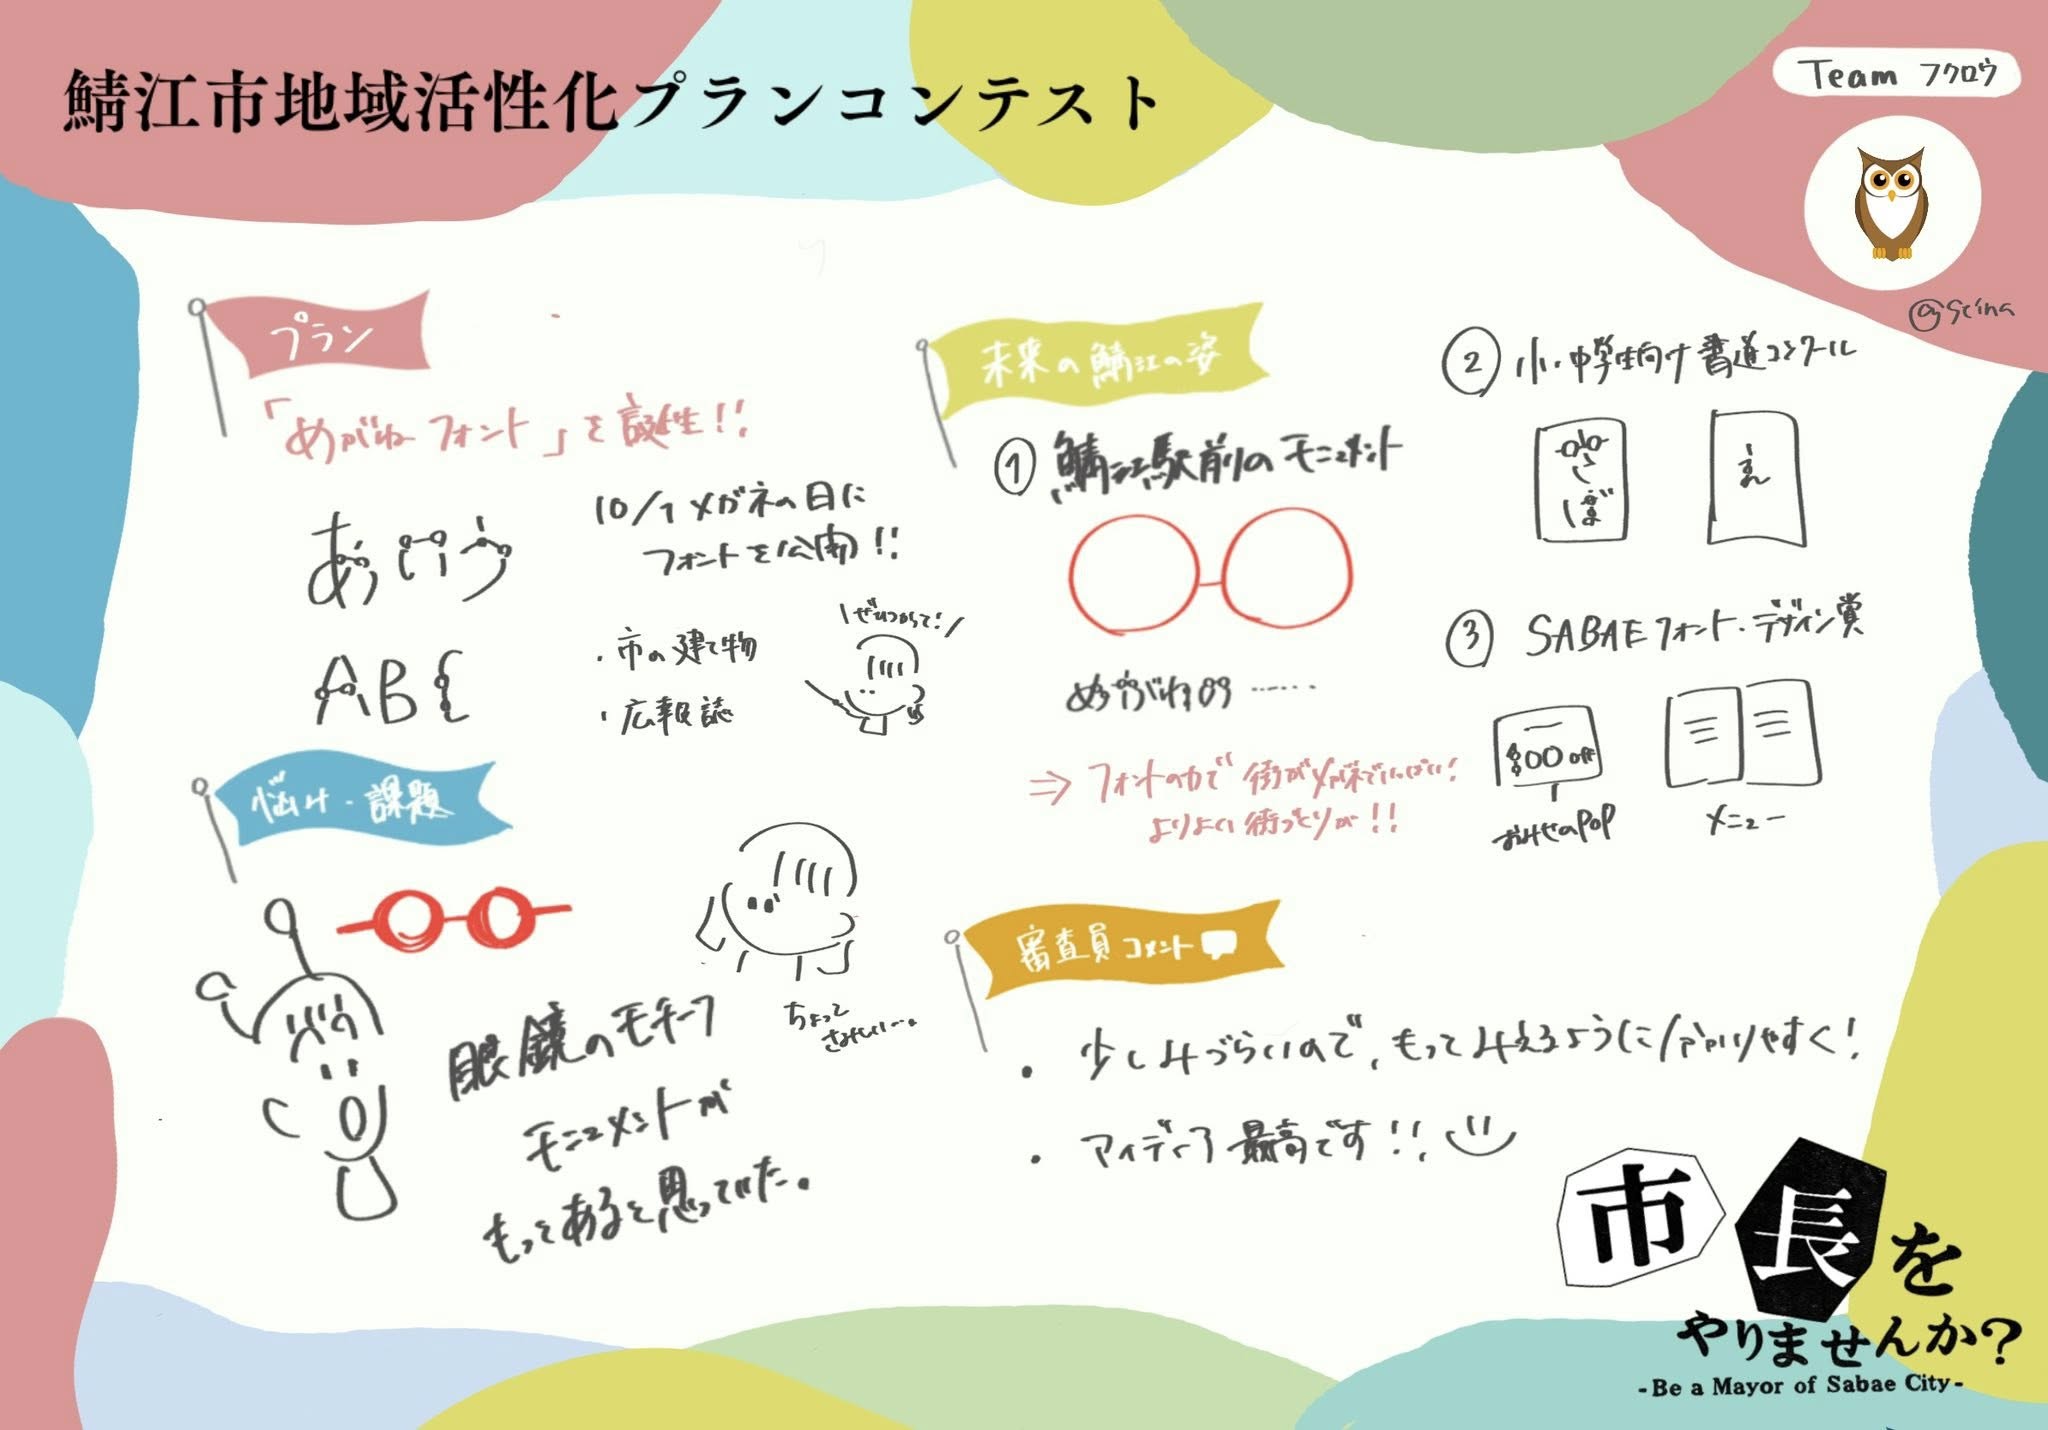 鯖江市地域活性化プランコンテスト
Team フクロウ
@gcina
プラン
「めがねフォント」を誕生!!
あいう
ABC
10/1 メガネの日に
フォントを公開!!
・市の建て物
・広報誌
\ぜひつかって!/
悩み・課題
眼鏡のモチーフ
モニュメントが
もっとあると思っていた。
ちょって
さみしい…。
未来の鯖江の姿
① 鯖江駅前のモニュメント
めがねの……
⇒ フォントの力で 街がメガネでいっぱい!
よりよい街づくりが!!
② 小・中学生向け書道コンクール
③ SABAEフォント・デザイン賞
$00 off
おみせのPOP
メニュー
審査員コメント
・少しみづらいので、もってみえるように/分かりやすく!
・アイデア最高です!!
市長を
やりませんか?
-Be a Mayor of Sabae City-